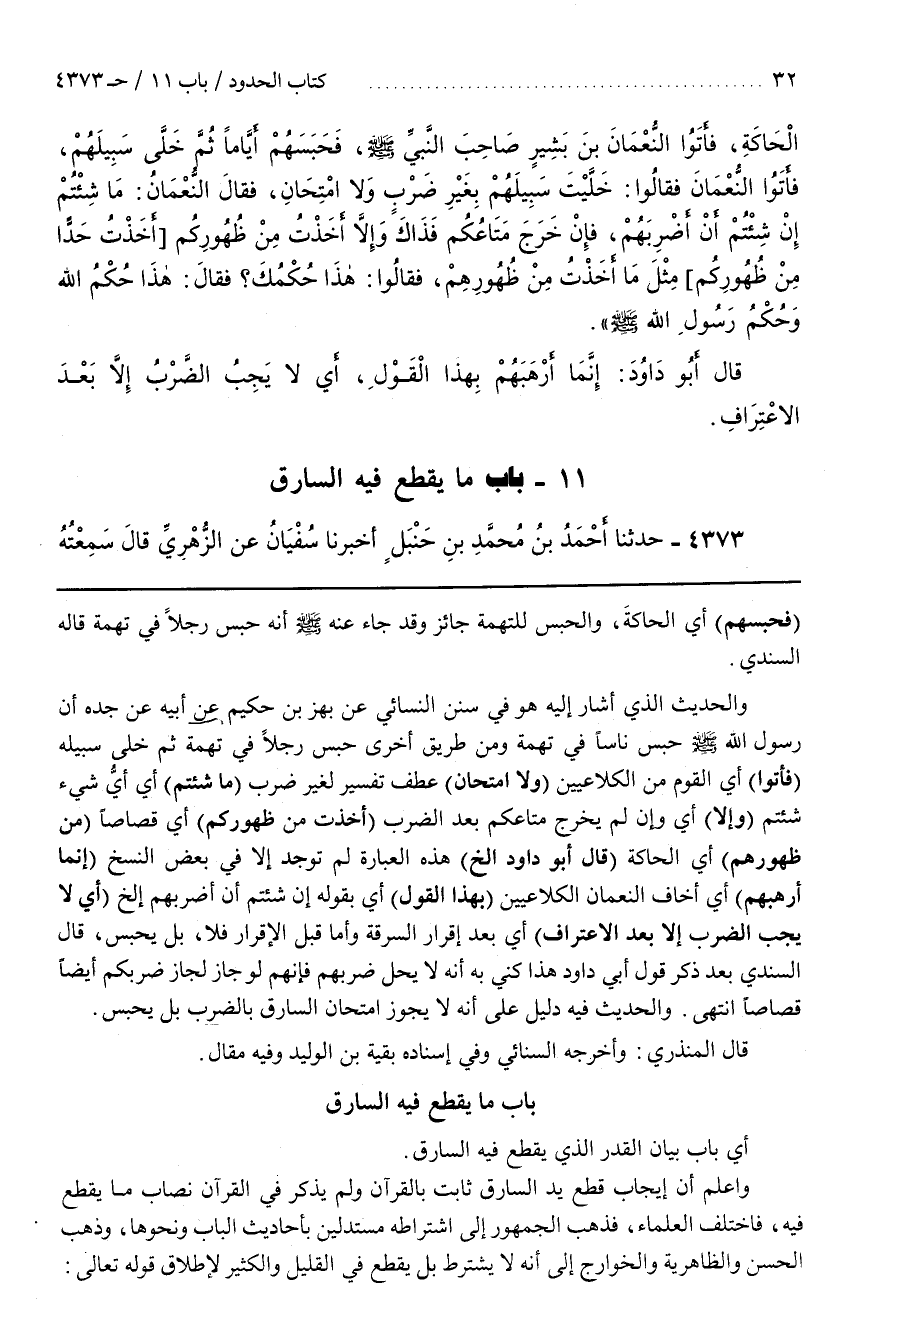 ٣٢ ........................................ كتاب الحدود / باب ١١ / حـ ٤٣٧٣
الْحَاكَةِ، فَأَتَوُا النُّعْمَانَ بنَ بَشِيرٍ صَاحِبَ النَّبِيِّ ﷺ، فَحَبَسَهُمْ أَيَّاماً ثُمَّ خَلَّى سَبِيلَهُمْ،
فأَتَوُا النُّعْمَانَ فقالُوا: خَلَّيْتَ سَبِيلَهُمْ بِغَيْرِ ضَرْبٍ وَلا امْتِحَانٍ، فقالَ النُّعْمَانُ: مَا شِئْتُمْ
إنْ شِئْتُمْ أَنْ أَضْرِبَهُمْ، فإنْ خَرَجَ مَتَاعُكُم فَذَاكَ وَإلَّا أَخَذْتُ مِنْ ظُهُورِكُم [أَخَذْتُ حَدًّا
مِنْ ظُهُورِكُم] مِثْلَ مَا أَخَذْتُ مِنْ ظُهُورِهِمْ، فقالُوا: هٰذَا حُكْمُكَ؟ فقالَ: هٰذَا حُكْمُ الله
وَحُكْمُ رَسُولِ الله ﷺ».
قال أَبُو دَاوُدَ: إِنَّمَا أَرْهَبَهُمْ بِهذا الْقَوْلِ، أَي لا يَجِبُ الضَّرْبُ إلَّا بَعْدَ
الاعْتِرَافِ.
١١ - باب ما يقطع فيه السارق
٤٣٧٣ - حدثنا أَحْمَدُ بنُ مُحمَّدِ بنِ حَنْبَلٍ أخبرنا سُفْيَانُ عن الزُّهْرِيِّ قالَ سَمِعْتُهُ
(فحبسهم) أي الحاكةَ، والحبس للتهمة جائز وقد جاء عنه ﷺ أنه حبس رجلاً في تهمة قاله
السندي.
والحديث الذي أشار إليه هو في سنن النسائي عن بهز بن حكيم عن أبيه عن جده أن
رسول الله ﷺ حبس ناساً في تهمة ومن طريق أخرى حبس رجلاً في تهمة ثم خلى سبيله
(فأتوا) أي القوم من الكلاعيين (ولا امتحان) عطف تفسير لغير ضرب (ما شئتم) أي أيُّ شيء
شئتم (وإلا) أي وإن لم يخرج متاعكم بعد الضرب (أخذت من ظهوركم) أي قصاصاً (من
ظهورهم) أي الحاكة (قال أبو داود الخ) هذه العبارة لم توجد إلا في بعض النسخ (إنما
أرهبهم) أي أخاف النعمان الكلاعيين (بهذا القول) أي بقوله إن شئتم أن أضربهم إلخ (أي لا
يجب الضرب إلا بعد الاعتراف) أي بعد إقرار السرقة وأما قبل الإقرار فلا، بل يحبس، قال
السندي بعد ذكر قول أبي داود هذا كني به أنه لا يحل ضربهم فإنهم لو جاز لجاز ضربكم أيضاً
قصاصاً انتهى. والحديث فيه دليل على أنه لا يجوز امتحان السارق بالضرب بل يحبس.
قال المنذري: وأخرجه السنائي وفي إسناده بقية بن الوليد وفيه مقال.
باب ما يقطع فيه السارق
أي باب بيان القدر الذي يقطع فيه السارق.
واعلم أن إيجاب قطع يد السارق ثابت بالقرآن ولم يذكر في القرآن نصاب ما يقطع
فيه، فاختلف العلماء، فذهب الجمهور إلى اشتراطه مستدلين بأحاديث الباب ونحوها، وذهب
الحسن والظاهرية والخوارج إلى أنه لا يشترط بل يقطع في القليل والكثير لإطلاق قوله تعالى: